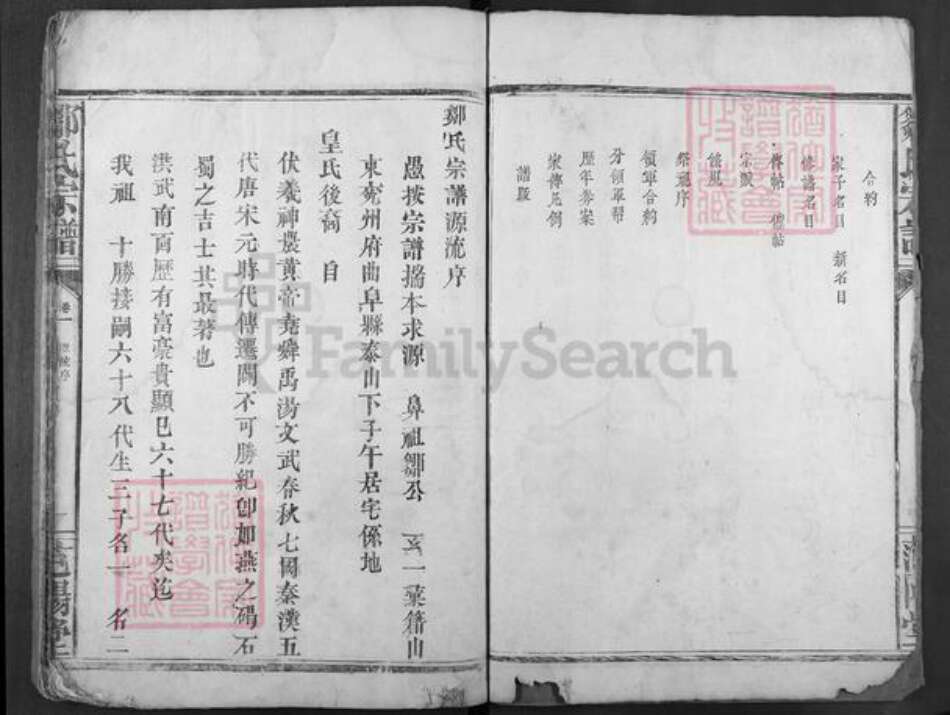 合約
家子名目　新名目
修譜名目
傳帖
宗賦
儀風
祭祀序
領軍合約
分領軍幫
歷年券案
家傳凡例
譜跋
鄒氏宗譜源流序
愚按宗譜揣本求源　鼻祖鄒公　一 籍山
東兖州府曲阜縣泰山下子午居宅係地
皇氏後裔　自
伏羲神農黃帝堯舜禹湯文武春秋七國秦漢五
代唐宋元時代傳遷闊不可勝紀卽如燕之碣石
蜀之吉士其最著也
洪武南百歷有富豪貴顯已六十七代矣迄
我祖　十勝接嗣六十八代生三子名一　名二
鄒氏宗譜
卷一
源流序
范陽堂
FamilySearch